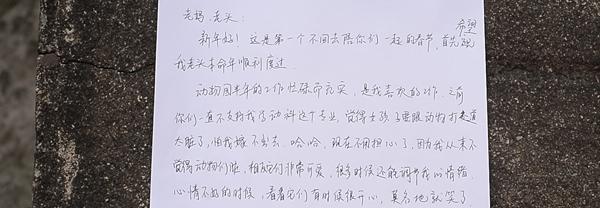 老妈、老头：
新年好！这是第一个不回去陪你们一起的春节，首先祝 希望
我老头本命年顺利度过。
动物园半年的工作忙碌而充实，是我喜欢的工作。之前
你们一直不支持我学动科这个专业，觉得女孩子要跟动物打交道
太脏了，怕我嫁不出去。哈哈，现在不用担心了，因为我从来不
觉得动物们脏，相反它们非常可爱，很多时候还能调节我的情绪
心情不好的时候，看看它们有时候很开心，莫名地就笑了